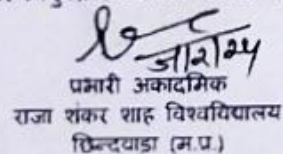 प्रभारी अकादमिक
राजा शंकर शाह विश्वविद्यालय
छिन्दवाडा (म.प्र.)